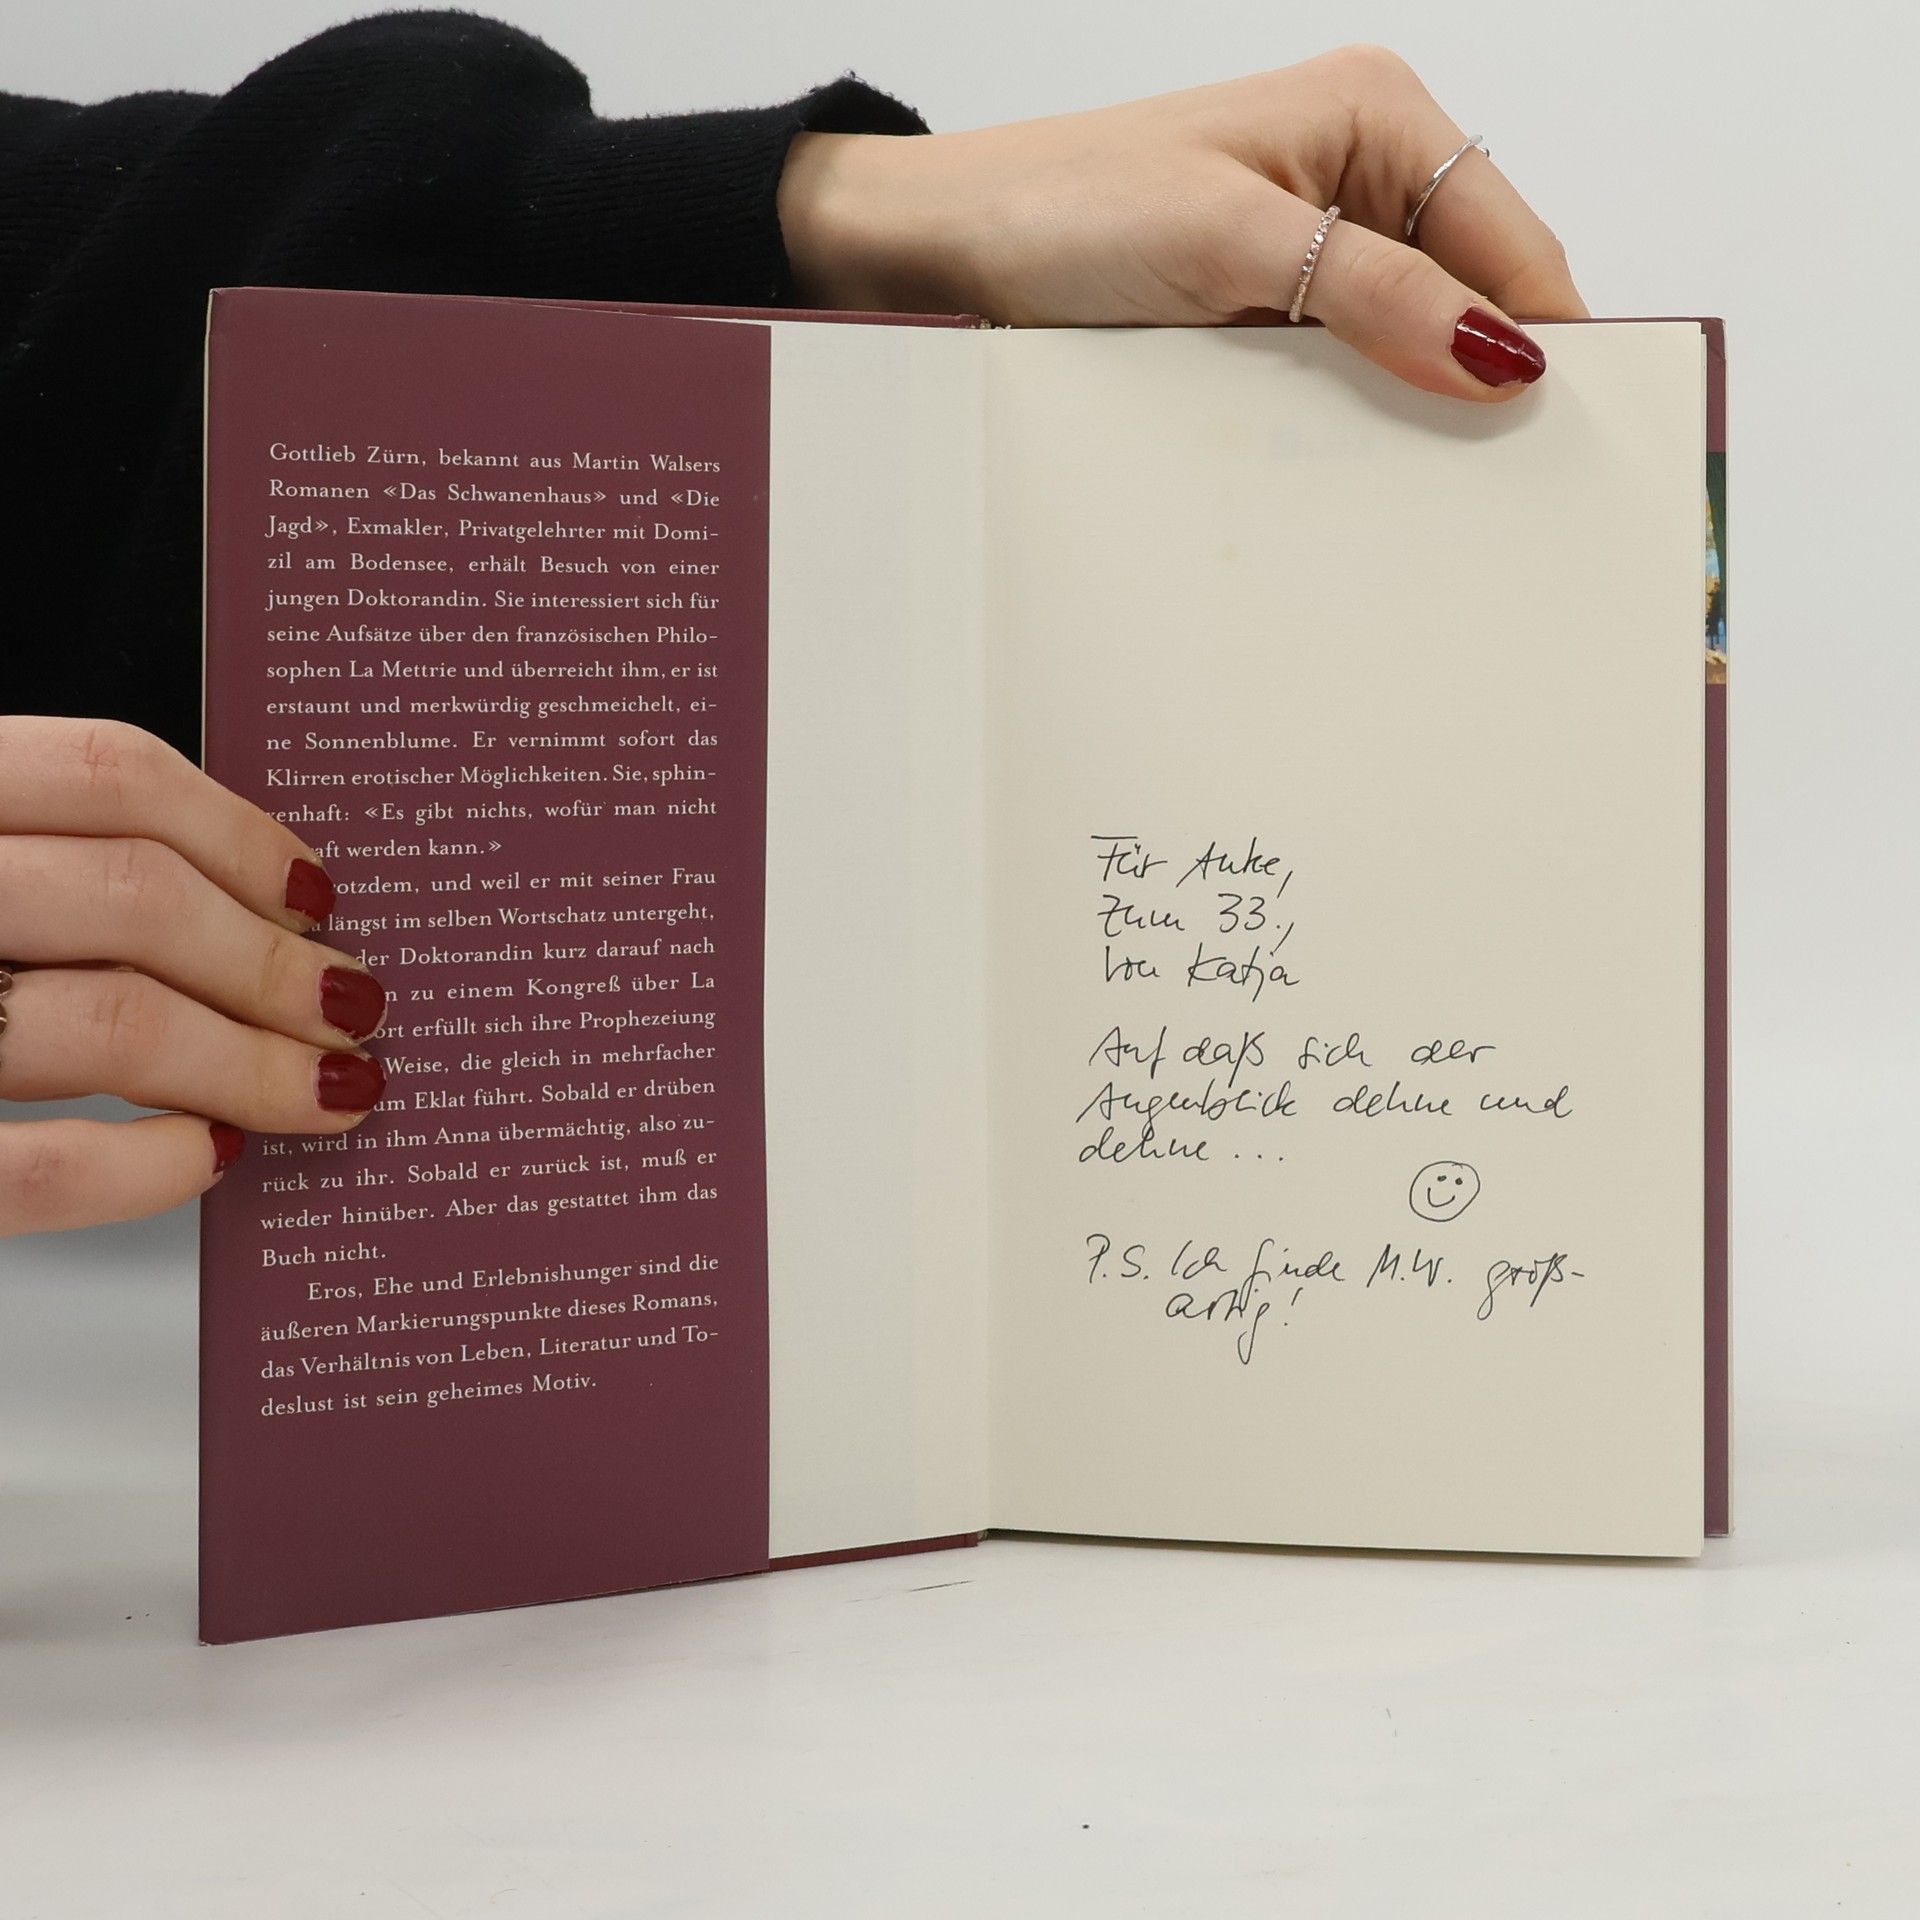 Gottlieb Zürn, bekannt aus Martin Walsers
Romanen «Das Schwanenhaus» und «Die
Jagd», Exmakler, Privatgelehrter mit Domi-
zil am Bodensee, erhält Besuch von einer
jungen Doktorandin. Sie interessiert sich für
seine Aufsätze über den französischen Philo-
sophen La Mettrie und überreicht ihm, er ist
erstaunt und merkwürdig geschmeichelt, ei-
ne Sonnenblume. Er vernimmt sofort das
Klirren erotischer Möglichkeiten. Sie, sphin-
xenhaft: «Es gibt nichts, wofür man nicht
aft werden kann.»
otzdem, und weil er mit seiner Frau
längst im selben Wortschatz untergeht,
der Doktorandin kurz darauf nach
n zu einem Kongreß über La
ort erfüllt sich ihre Prophezeiung
Weise, die gleich in mehrfacher
um Eklat führt. Sobald er drüben
ist, wird in ihm Anna übermächtig, also zu-
rück zu ihr. Sobald er zurück ist, muß er
wieder hinüber. Aber das gestattet ihm das
Buch nicht.
Eros, Ehe und Erlebnishunger sind die
äußeren Markierungspunkte dieses Romans,
das Verhältnis von Leben, Literatur und To-
deslust ist sein geheimes Motiv.
Für Anke,
zum 33.,
von Katja
Auf daß sich der
Augenblick dehne und
dehne ...
P.S. Ich finde M.W. groß-
artig!